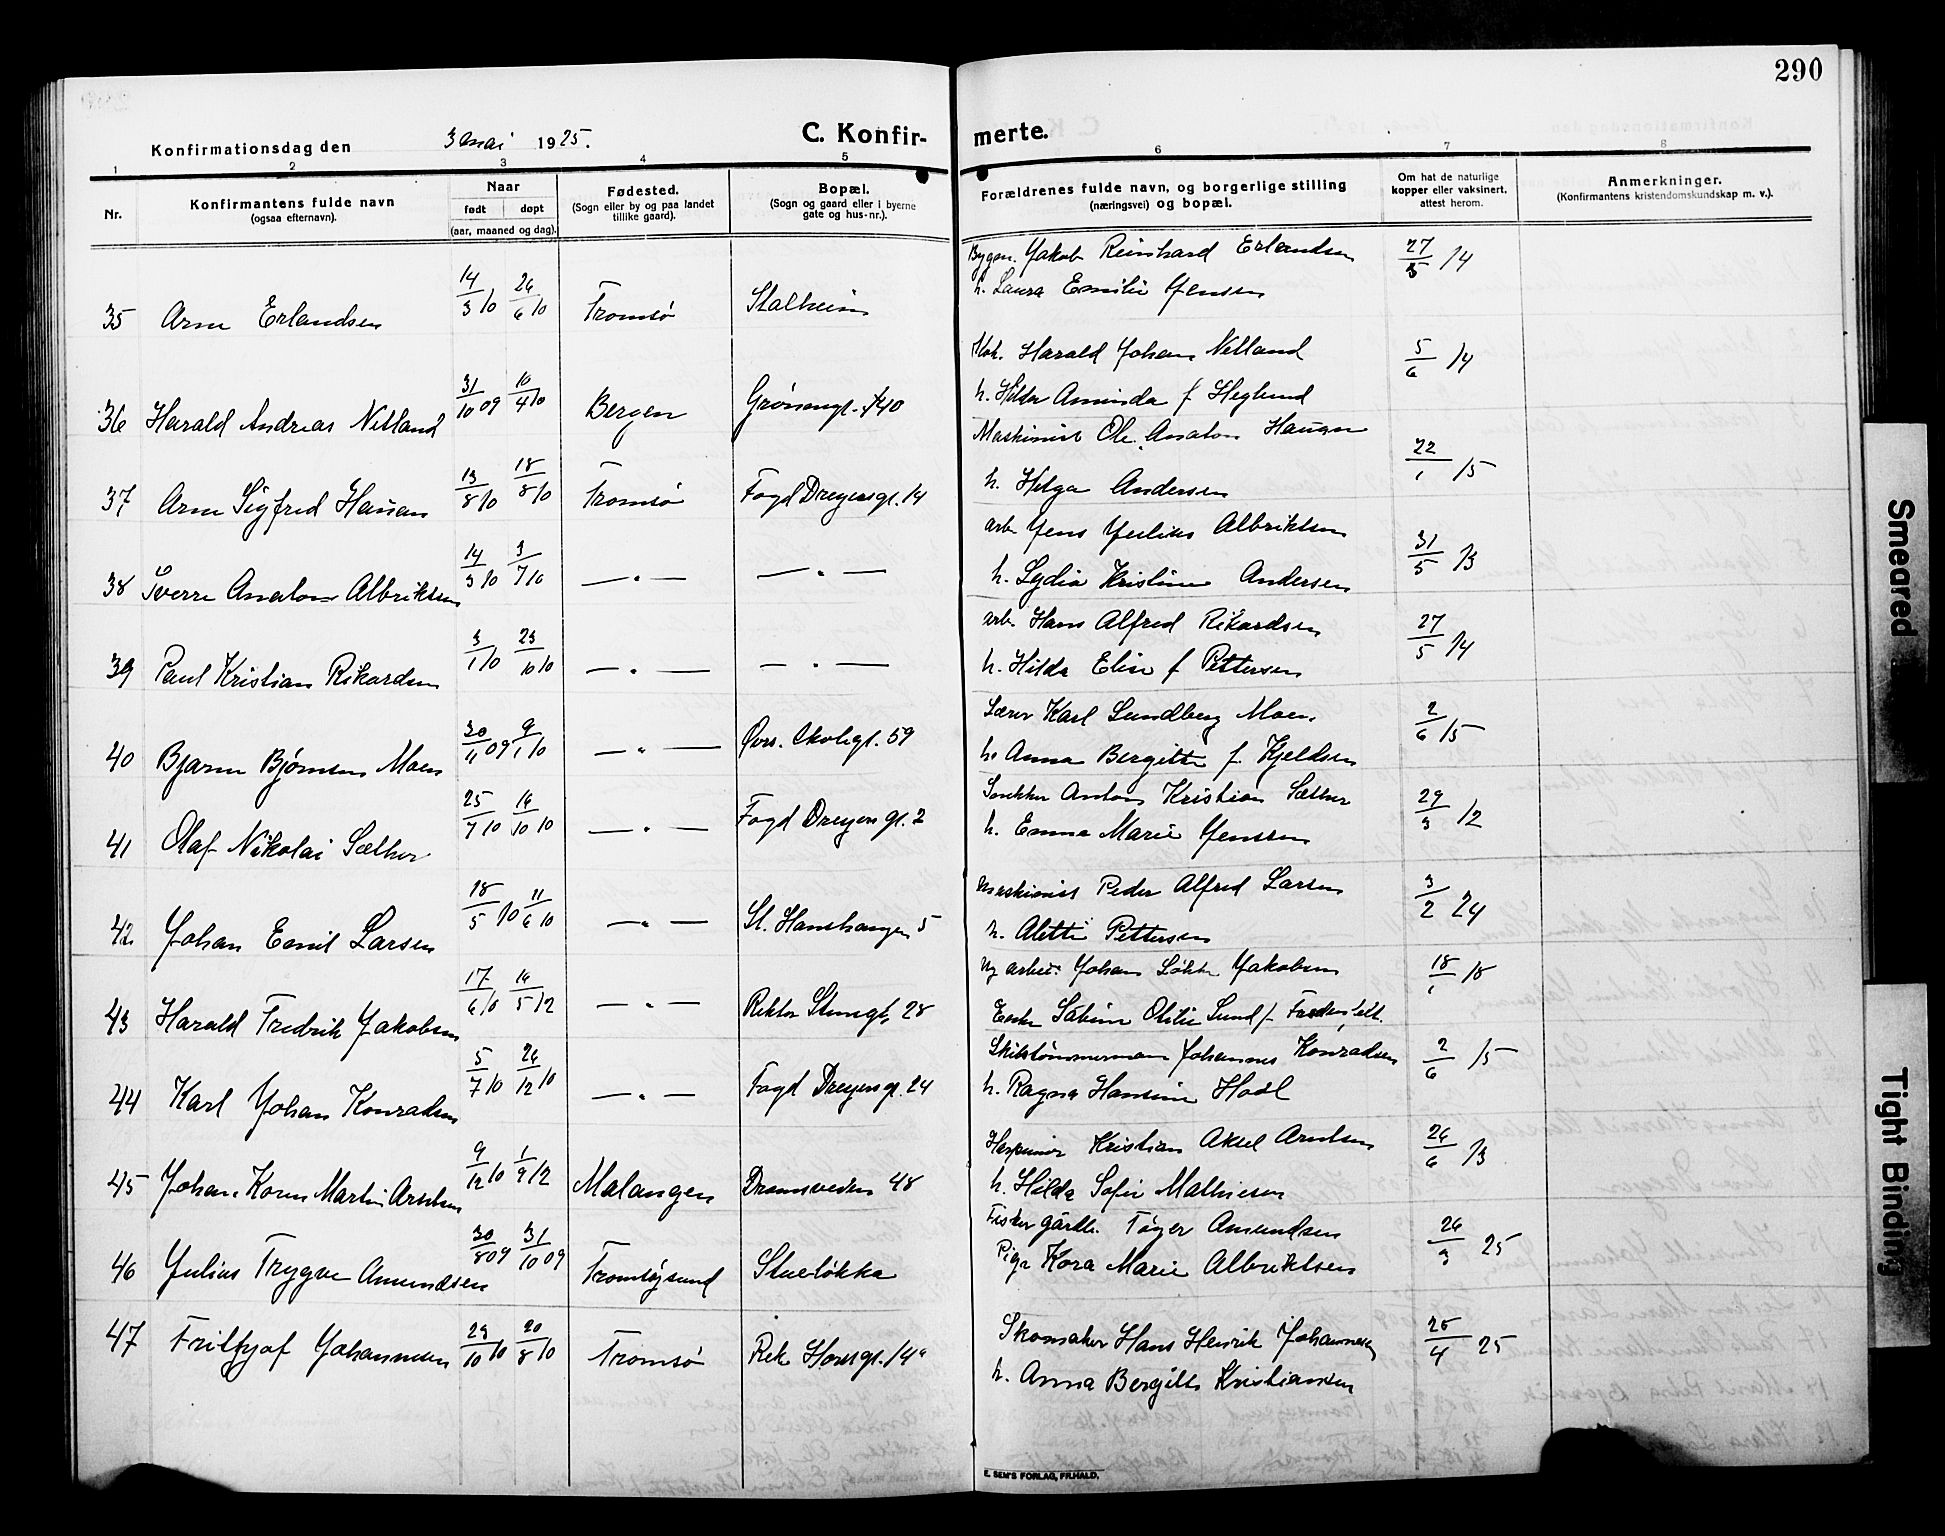 290
Konfirmationsdag den 3 mai 1925. C. Konfirmerte.
1 2 3 4 5 6 7 8
Nr. Konfirmantens fulde navn (ogsaa efternavn). Naar født døpt (aar, maaned og dag). Fødested. (Sogn eller by og paa landet tillike gaard). Bopæl. (Sogn og gaard eller i byerne gate og hus-nr.). Forældrenes fulde navn, og borgerlige stilling (næringsvei) og bopæl. Om hat de naturlige kopper eller vaksinert, attest herom. Anmerkninger. (Konfirmantens kristendomskundskap m. v.).
35 Arne Erlandsen 14/3 10 26/6 10 Tromsø Stalheim Jakob Reinhard Erlandsen 27/5 14
h. Laura Emilie Jensen
36 Harald Andreas Netland 31/10 09 10/4 10 Bergen Grønnegt. 140 Harald Johan Netland 5/6 14
h. Hilda Aminda f Heglund
37 Arne Sigfred Haugan 13/8 10 18/8 10 Tromsø Fogd Dreyersgt. 14 Maskinist Ole Anaton Haugan 22/1 15
h. Helga Andersen
38 Sverre Anaton Albriktsen 14/3 10 3/7 10 — " — — " — arb. Jens Julius Albriktsen 31/5 13
h. Lydia Kristine Andersen
39 Paul Kristian Rikardsen 3/1 10 23/10 10 — " — — " — arb. Hans Alfred Rikardsen 27/5 14
h. Hilda Elise f Pettersen
40 Bjarne Bjørnsen Moen 30/11 09 9/1 10 — " — Øvr. Skolegt. 59 Lærer Karl Lundberg Moen. 2/6 15
h. Anna Bergitte f. Kjeldsen
41 Olaf Nikolai Sæther 25/7 10 16/10 10 — " — Fogd Dreyersgt. 2 Snekker Anton Kristian Sæther 29/3 12
h. Emma Marie Jenssen
42 Johan Emil Larsen 18/5 10 11/6 10 — " — St. Hanshaugen 5 Maskinist Peder Alfred Larsen 3/2 24
h. Alette Pettersen
43 Harald Fredrik Jakobsen 17/6 10 16/5 12 — " — Rektor Steensgt. 28 arbei. Johan Løkke Jakobsen 18/1 18
Enke Sabine Otilie Lund f.
44 Karl Johan Konradsen 5/7 10 26/12 10 — " — Fogd Dreyersgt. 24 Skibstømmermann Johannes Konradsen 2/6 15
h. Ragna Hansine Hoel
45 Johan Koren Martin Arntsen 9/12 10 1/9 12 Malangen Dramsveien 48 Kristian Aksel Arntsen 26/6 13
h. Hilda Sofie Mathiesen
46 Julius Trygve Amundsen 30/8 09 31/10 09 Tromsøysund Stueløkka Fisker gårdb. Tøger Amundsen 26/3 25
Pige Kora Marie Albriktsen
47 Fritjof Johannesen 29/10 10 20/8 10 Tromsø Rek Horsgt. 14a Skomaker Hans Henrik Johannesen 25/4 25
h. Anna Bergitte Kristiansen
E. SEM'S FORLAG, FR.HALD.
Smeared
Tight Binding